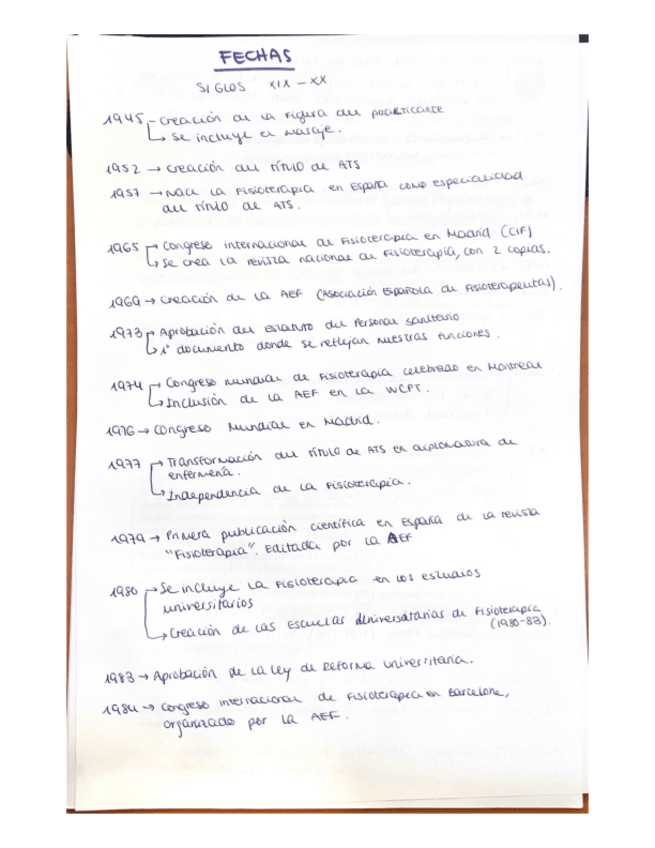 FECHAS
SIGLOS XIX - XX
1945 - Creación de la figura del practicante
↳ Se incluye el masaje.
1952 → Creación del título de ATS
1957 → Nace la Fisioterapia en España como especialidad
del título de ATS.
1965 → Congreso internacional de Fisioterapia en Madrid (CIF)
↳ Se crea la revista nacional de Fisioterapia, con 2 copias.
1969 → Creación de la AEF (Asociación Española de Fisioterapeutas).
1973 → Aprobación del estatuto del Personal sanitario
↳ 1º documento donde se reflejan nuestras funciones.
1974 → Congreso mundial de Fisioterapia celebrado en Montreal.
↳ Inclusión de la AEF en la WCPT.
1976 → Congreso Mundial en Madrid.
1977 → Transformación del título de ATS en diplomatura de
enfermería.
↳ Independencia de la Fisioterapia.
1979 → Primera publicación científica en España de la revista
"Fisioterapia". Editada por la AEF
1980 → Se incluye la Fisioterapia en los estudios
universitarios
↳ Creación de las Escuelas Universitarias de Fisioterapia
(1980-83).
1983 → Aprobación de la Ley de Reforma Universitaria.
1984 → Congreso internacional de Fisioterapia en Barcelona,
organizado por la AEF.